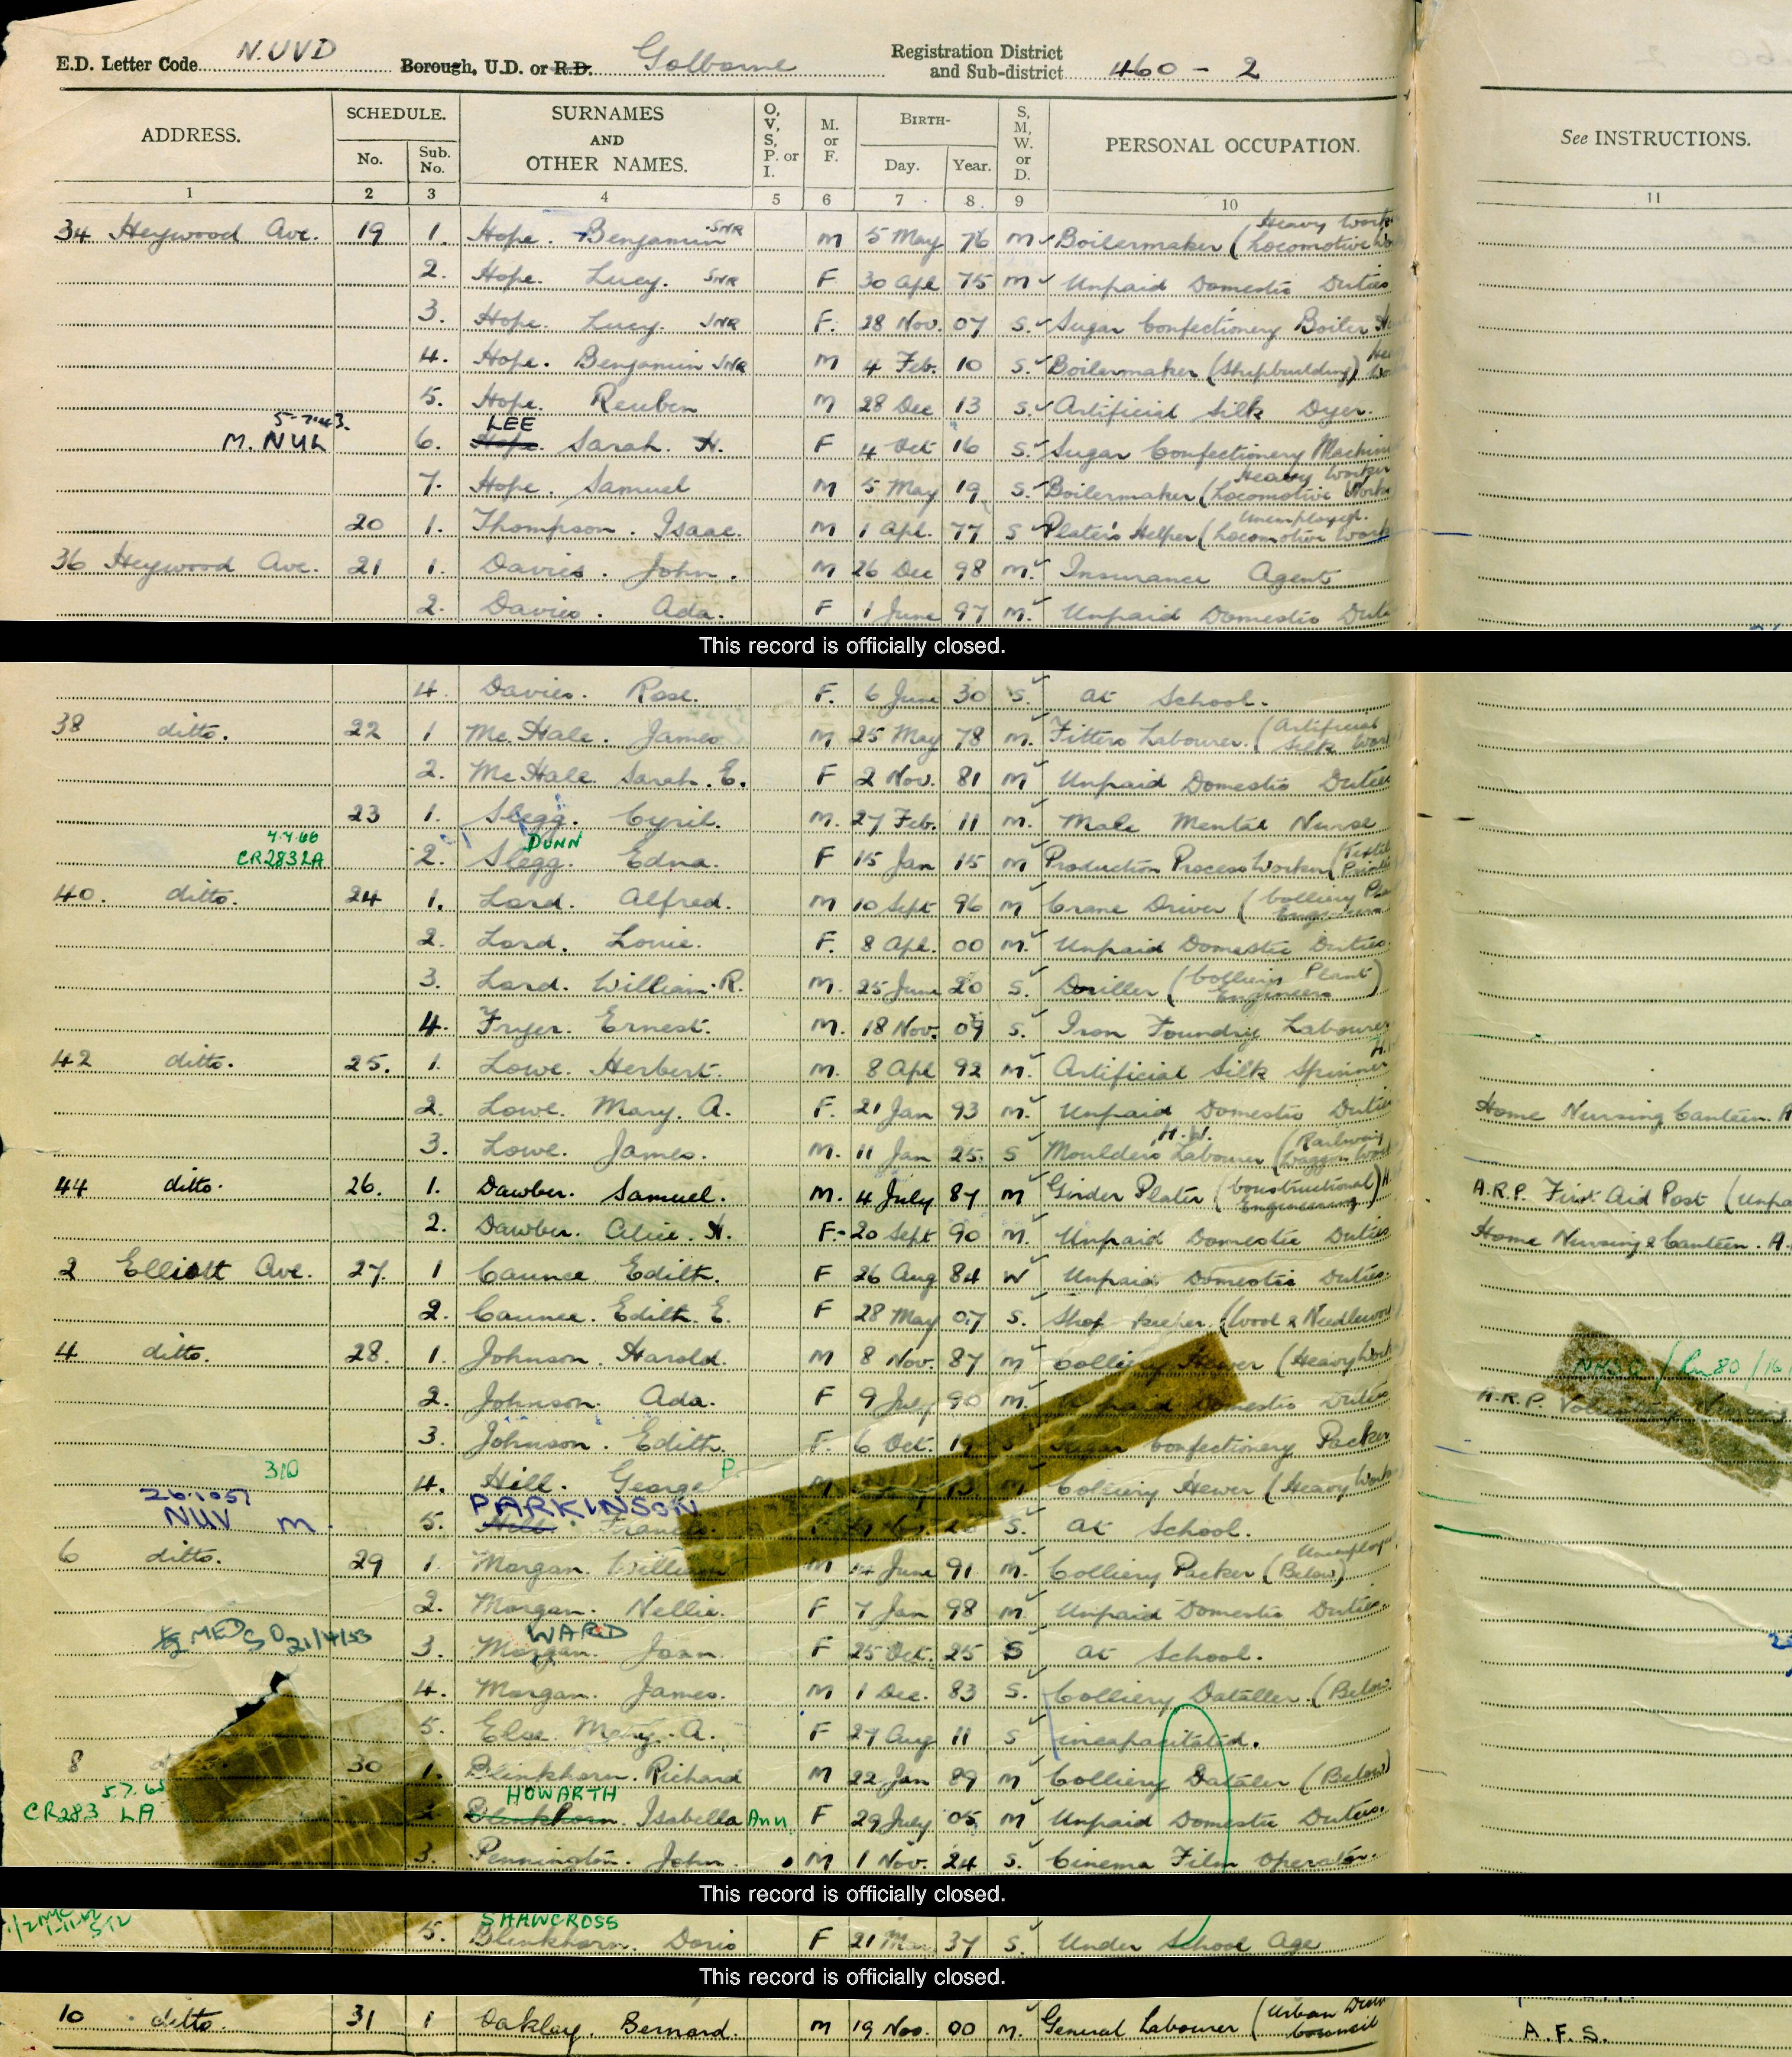 E.D. Letter Code N.UVD Borough, U.D. or R.D. Golborne Registration District and Sub-district 460 - 2
ADDRESS. SCHEDULE. No. Sub. No. SURNAMES AND OTHER NAMES. O, V, S, P. or I. M. or F. BIRTH- Day. Year. S, M, W. or D. PERSONAL OCCUPATION. See INSTRUCTIONS.
1 2 3 4 5 6 7 8 9 10 11
34 Heywood Ave. 19 1. Hope. Benjamin SNR M 5 May 76 M Boilermaker (Locomotive Heavy Work
2. Hope. Lucy. SNR F 30 Apl 75 M Unpaid Domestic Duties
3. Hope. Lucy. JNR F. 28 Nov. 07 S. Sugar Confectionery Boiler
4. Hope. Benjamin JNR M 4 Feb. 10 S. Boilermaker (Shipbuilding)
5. Hope. Reuben M 28 Dec 13 S. Artificial Silk Dyer.
5-7-43.
M. NUL 6. Hope. LEE Sarah. H. F 4 Oct 16 S. Sugar Confectionery Machine
7. Hope. Samuel M 5 May 19 S. Boilermaker (Locomotive Works Heavy Worker
20 1. Thompson. Isaac. M 1 Apl. 77 S Plater's Helper (Locomotive Work Unemployed.
36 Heywood Ave. 21 1. Davies. John. M 26 Dec 98 M. Insurance Agent
2. Davies. Ada. F 1 June 97 M. Unpaid Domestic Duti
This record is officially closed.
4. Davies. Rose. F. 6 June 30 S. At School.
38 ditto. 22 1 Mc.Hale. James M 25 May 78 M. Fitters Labourer. (Artificial Silk Work
2. Mc Hale. Sarah. E. F 2 Nov. 81 M Unpaid Domestic Duties
23 1. Slegg. Cyril. M. 27 Feb. 11 M. Male Mental Nurse
7.4.66
CR2832A 2. Slegg. DUNN Edna. F 15 Jan 15 M Production Process Worker (Textile
40. ditto. 24 1. Lord. Alfred. M 10 Sept 96 M Crane Driver (Colliery Engineers
2. Lord. Louie. F. 8 Apl. 00 M. Unpaid Domestic Duties.
3. Lord. William. R. M. 25 June 20 S. Driller (Colliery Plant Engineers)
4. Fryer. Ernest. M. 18 Nov. 09 S. Iron Foundry Labourer
42 ditto. 25. 1. Lowe. Herbert. M. 8 Apl 92 M. Artificial Silk Spinner
2. Lowe. Mary. A. F. 21 Jan 93 M. Unpaid Domestic Duties Home Nursing Canteen.
3. Lowe. James. M. 11 Jan 25. S Moulders Labourer H.W. (Railway Waggon Works
44 ditto. 26. 1. Dawber. Samuel. M. 4 July 87 M Girder Plater (Constructional Engineering) A.R.P. First Aid Post (Unpa
2. Dawber. Alice. H. F. 20 Sept 90 M. Unpaid Domestic Duties Home Nursing & Canteen.
2 Elliott Ave. 27. 1 Caunce Edith. F 26 Aug 84 W Unpaid Domestic Duties.
2. Caunce. Edith. E. F 28 May 07 S. Shop keeper. (Wool & Needlework
4 ditto. 28. 1. Johnson. Harold. M 8 Nov. 87 M Colliery Hewer (Heavy Work
2. Johnson. Ada. F 9 July 90 M. Unpaid Domestic Duties A.R.P.
3. Johnson. Edith. F. 6 Oct. S Sugar Confectionery Packer
310 4. Hill. George P. M 13 M Colliery Hewer (Heavy Work
26.10 51
NUV M 5. PARKINSON Hill. S. At School.
6 ditto. 29 1. Morgan. William M 14 June 91 M. Colliery Packer (Below) Unemploy
2. Morgan. Nellie. F 7 Jan 98 M. Unpaid Domestic Duties.
21/4/53 3. Morgan. WARD Joan. F 25 Oct. 25 S At School.
4. Morgan. James. M 1 Dec. 83 S. Colliery Dataller. (Below
5. Else. Mary. A. F 27 Aug 11 S incapacitated.
8 30 1. Blinkhorn. Richard M 22 Jan 89 M Colliery Dataler (Below)
5.7.65
CR283 LA 2. Blinkhorn. HOWARTH Isabella Ann. F 29 July 05 M Unpaid Domestic Duties.
3. Pennington. John. M 1 Nov. 24 S. Cinema Film Operator.
This record is officially closed.
5. Blinkhorn. SHAWCROSS Doris F 21 Mar 37 S. Under School Age
This record is officially closed.
10 ditto. 31 1 Oakley. Bernard. M 19 Nov. 00 M. General Labourer (Urban Council A.F.S.